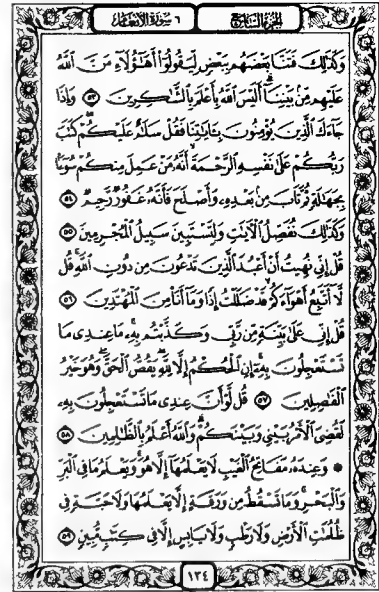 الجزء السابع ٦ سورة الأنعام
وَكَذَٰلِكَ فَتَنَّا بَعْضَهُم بِبَعْضٍ لِّيَقُولُوٓا۟ أَهَٰٓؤُلَآءِ مَنَّ ٱللَّهُ
عَلَيْهِم مِّنۢ بَيْنِنَآ أَلَيْسَ ٱللَّهُ بِأَعْلَمَ بِٱلشَّٰكِرِينَ ٥٣ وَإِذَا
جَآءَكَ ٱلَّذِينَ يُؤْمِنُونَ بِـَٔايَٰتِنَا فَقُلْ سَلَٰمٌ عَلَيْكُمْ كَتَبَ
رَبُّكُمْ عَلَىٰ نَفْسِهِ ٱلرَّحْمَةَ أَنَّهُۥ مَنْ عَمِلَ مِنكُمْ سُوٓءًۢا
بِجَهَٰلَةٍ ثُمَّ تَابَ مِنۢ بَعْدِهِۦ وَأَصْلَحَ فَأَنَّهُۥ غَفُورٌ رَّحِيمٌ ٥٤
وَكَذَٰلِكَ نُفَصِّلُ ٱلْـَٔايَٰتِ وَلِتَسْتَبِينَ سَبِيلُ ٱلْمُجْرِمِينَ ٥٥
قُلْ إِنِّى نُهِيتُ أَنْ أَعْبُدَ ٱلَّذِينَ تَدْعُونَ مِن دُونِ ٱللَّهِ قُل
لَّآ أَتَّبِعُ أَهْوَآءَكُمْ قَدْ ضَلَلْتُ إِذًا وَمَآ أَنَا۠ مِنَ ٱلْمُهْتَدِينَ ٥٦
قُلْ إِنِّى عَلَىٰ بَيِّنَةٍ مِّن رَّبِّى وَكَذَّبْتُم بِهِۦ مَا عِندِى مَا
تَسْتَعْجِلُونَ بِهِۦٓ إِنِ ٱلْحُكْمُ إِلَّا لِلَّهِ يَقُصُّ ٱلْحَقَّ وَهُوَ خَيْرُ
ٱلْفَٰصِلِينَ ٥٧ قُل لَّوْ أَنَّ عِندِى مَا تَسْتَعْجِلُونَ بِهِۦ
لَقُضِىَ ٱلْأَمْرُ بَيْنِى وَبَيْنَكُمْ وَٱللَّهُ أَعْلَمُ بِٱلظَّٰلِمِينَ ٥٨
۞ وَعِندَهُۥ مَفَاتِحُ ٱلْغَيْبِ لَا يَعْلَمُهَآ إِلَّا هُوَ وَيَعْلَمُ مَا فِى ٱلْبَرِّ
وَٱلْبَحْرِ وَمَا تَسْقُطُ مِن وَرَقَةٍ إِلَّا يَعْلَمُهَا وَلَا حَبَّةٍ فِى
ظُلُمَٰتِ ٱلْأَرْضِ وَلَا رَطْبٍ وَلَا يَابِسٍ إِلَّا فِى كِتَٰبٍ مُّبِينٍ ٥٩
١٣٤